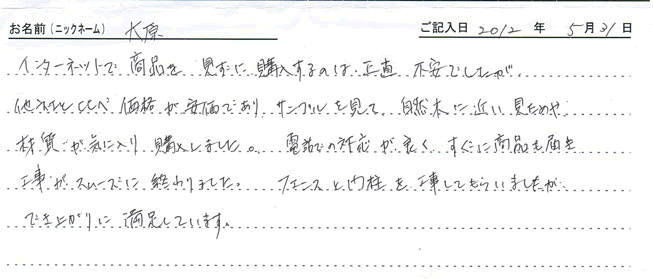 お名前(ニックネーム) 大原 ご記入日 2012 年 5月31日
インターネットで商品を見ずに購入するのは正直不安でしたが、
他社と比べ価格が安価であり サンプルを見て、自然木に近い見ためや
材質が気に入り購入しました。電話での対応が良く すぐに商品も届き
工事がスムーズに終わりました。フェンスと門柱を工事してもらいましたが
でき上がりに満足しています。